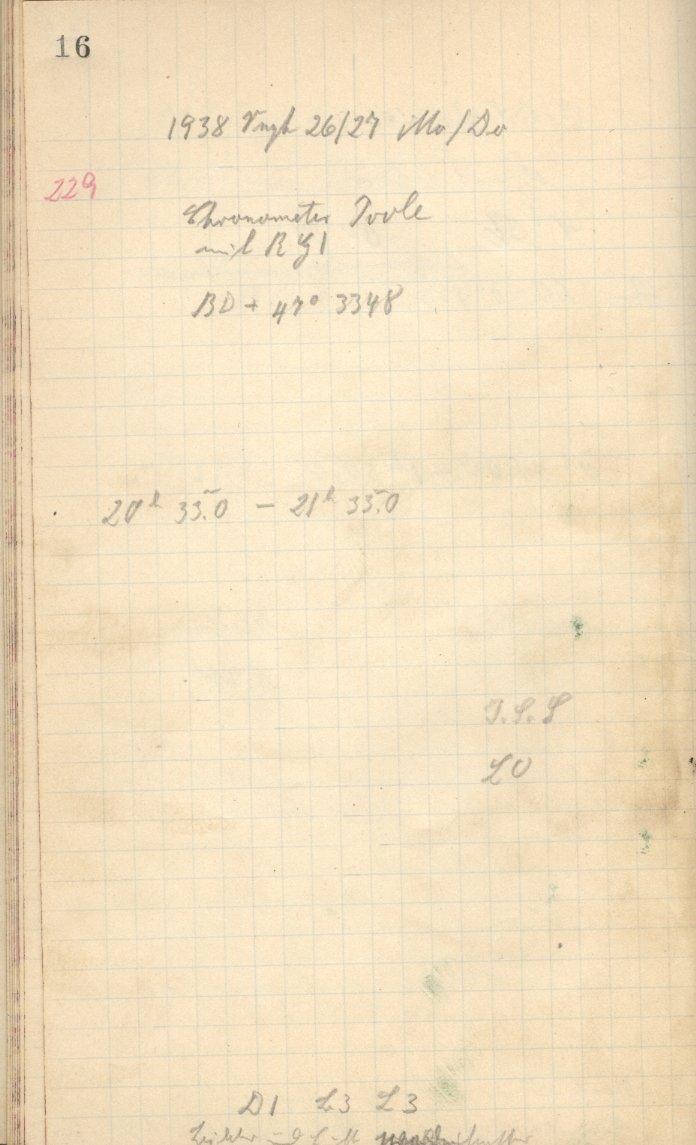 16
1938 26/27
229
Chronometer Poole
mit R G 1
BD + 47° 3348
20h 35.0 – 21h 35.0
J. S. S
L0
D1 L3 L3